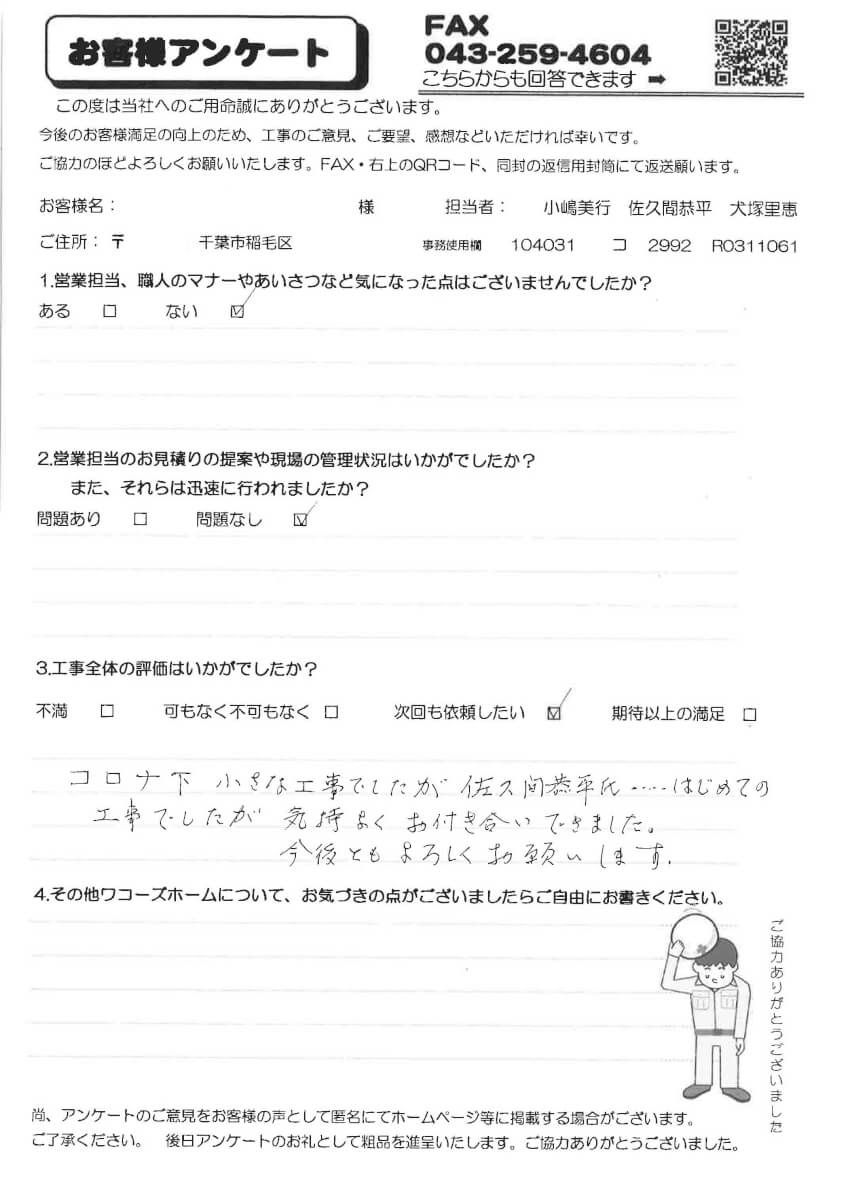 お客様アンケート
FAX
043-259-4604
こちらからも回答できます ➡
この度は当社へのご用命誠にありがとうございます。
今後のお客様満足の向上のため、工事のご意見、ご要望、感想などいただければ幸いです。
ご協力のほどよろしくお願いいたします。FAX・右上のQRコード、同封の返信用封筒にて返送願います。
お客様名： 様 担当者： 小嶋美行 佐久間恭平 犬塚里恵
ご住所：〒 千葉市稲毛区 事務使用欄 104031 コ 2992 R0311061
1.営業担当、職人のマナーやあいさつなど気になった点はございませんでしたか？
ある □ ない ☑
2.営業担当のお見積りの提案や現場の管理状況はいかがでしたか？
また、それらは迅速に行われましたか？
問題あり □ 問題なし ☑
3.工事全体の評価はいかがでしたか？
不満 □ 可もなく不可もなく □ 次回も依頼したい ☑ 期待以上の満足 □
コロナ下 小さな工事でしたが 佐久間恭平氏……はじめての
工事でしたが 気持よく お付き合いできました。
今後ともよろしくお願いします.
4.その他ワコーズホームについて、お気づきの点がございましたらご自由にお書きください。
ご協力ありがとうございました
尚、アンケートのご意見をお客様の声として匿名にてホームページ等に掲載する場合がございます。
ご了承ください。 後日アンケートのお礼として粗品を進呈いたします。ご協力ありがとうございました。